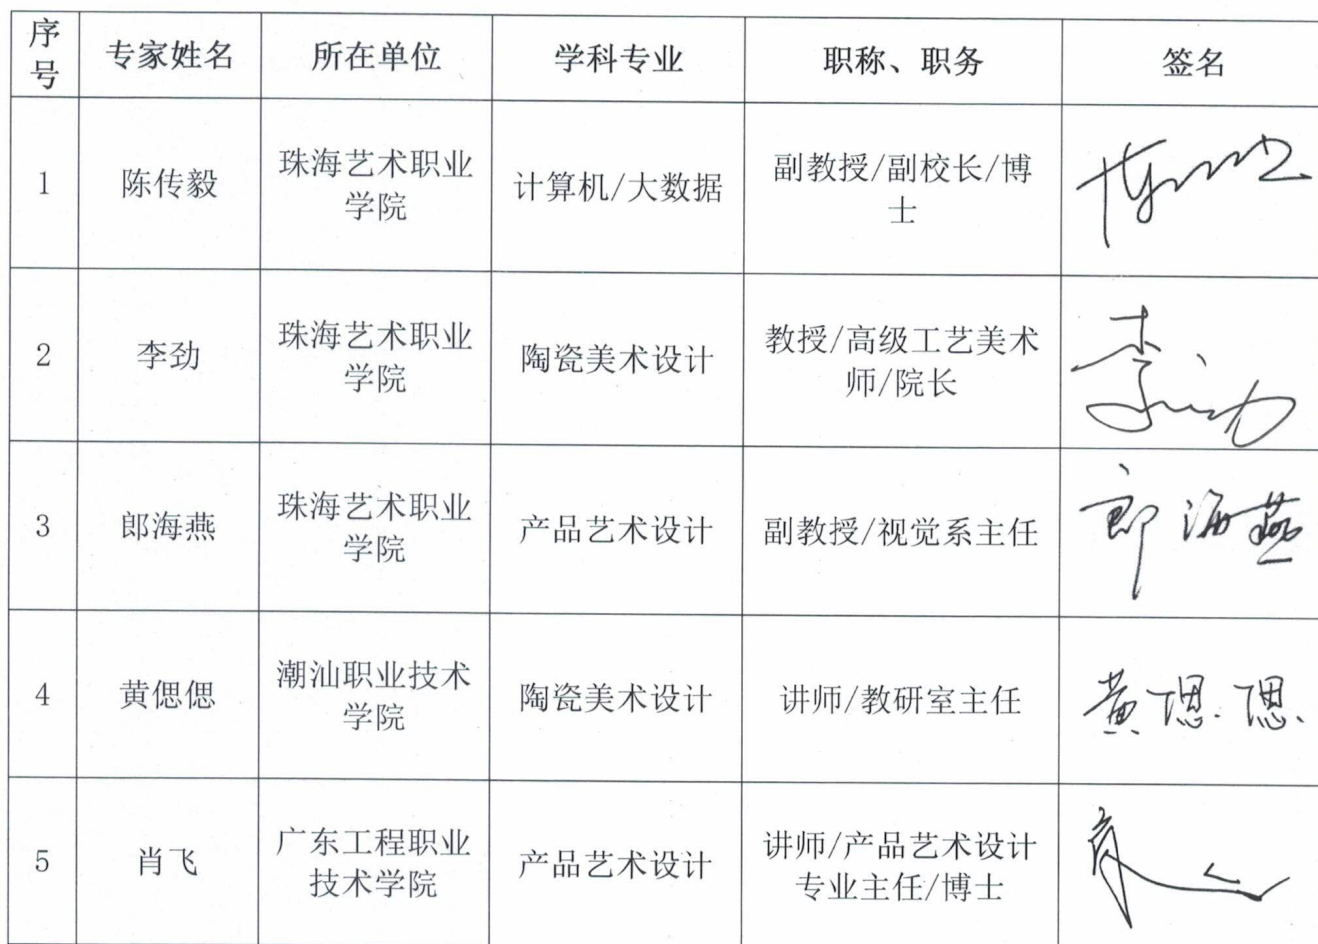 序号 专家姓名 所在单位 学科专业 职称、职务 签名
1 陈传毅 珠海艺术职业学院 计算机/大数据 副教授/副校长/博士
2 李劲 珠海艺术职业学院 陶瓷美术设计 教授/高级工艺美术师/院长 李劲
3 郎海燕 珠海艺术职业学院 产品艺术设计 副教授/视觉系主任 郎海燕
4 黄偲偲 潮汕职业技术学院 陶瓷美术设计 讲师/教研室主任 黄偲偲
5 肖飞 广东工程职业技术学院 产品艺术设计 讲师/产品艺术设计专业主任/博士